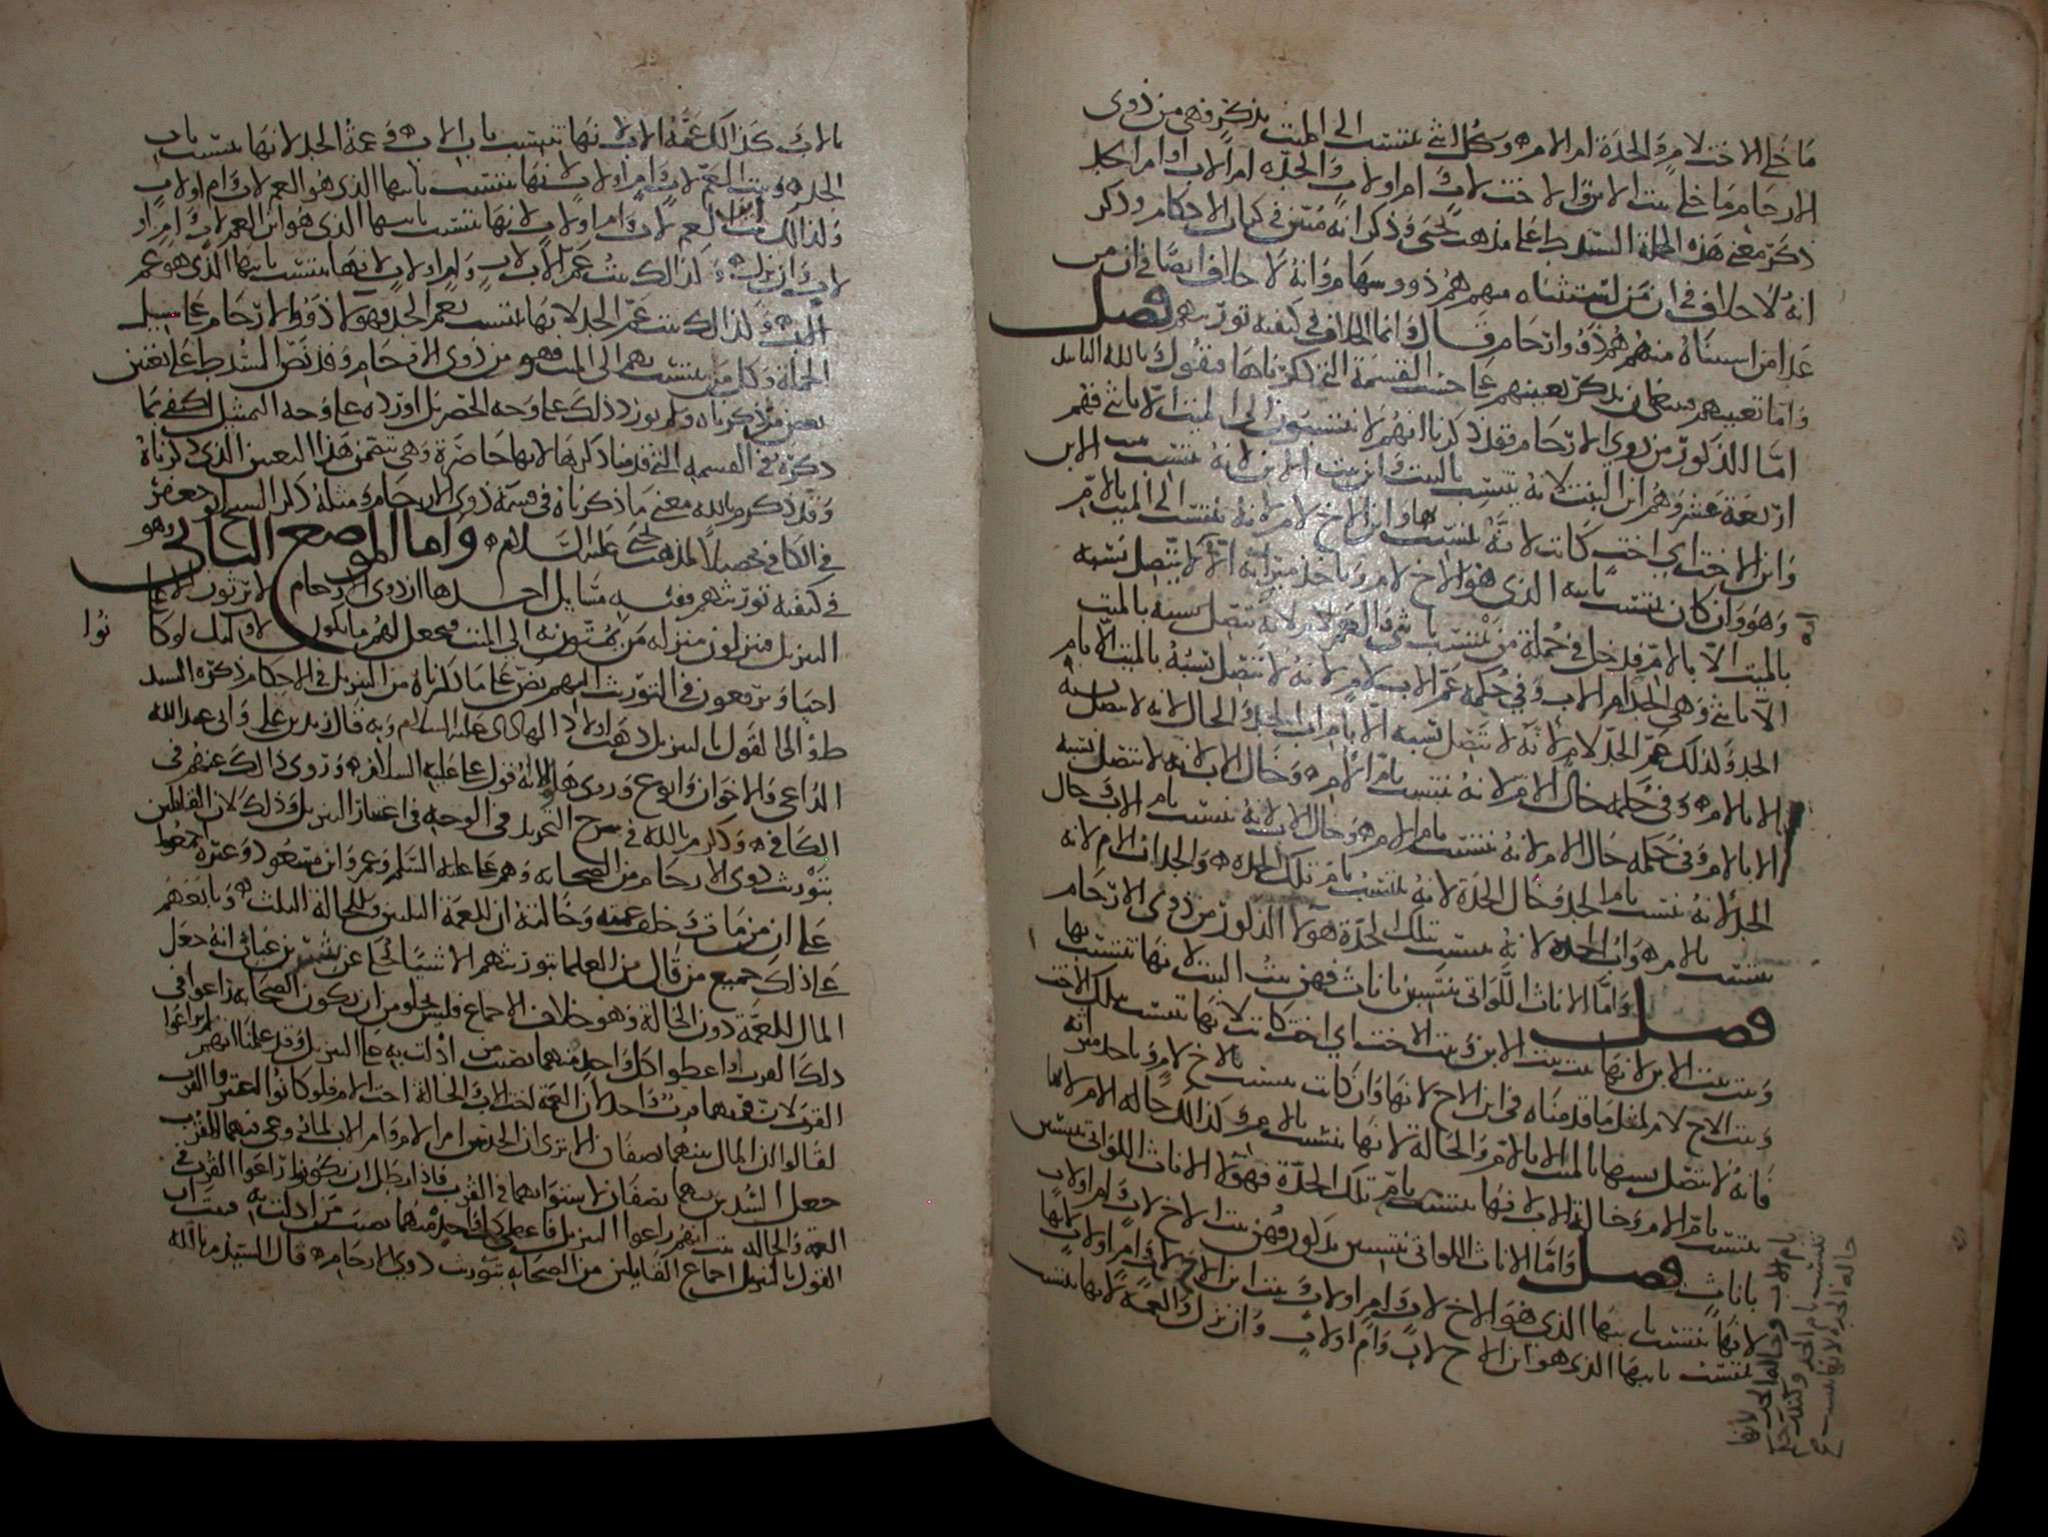 ما خلا الاخت لام والجدة ام الام وكل انثى تنتسب الى الميت بذكر فهي من ذوي
الارحام ما خلا بنت الابن والاخت لاب وام او لاب والجدة ام الاب او ام الجد
ذكر معنى هذه الجملة السيد ط على مذهب يحيى وذكر انه مبين في كتاب الاحكام وذكر
انه لا خلاف في ان من استثناه منهم هم ذوو سهام وانه لا خلاف ايضا في ان من
عدا من استثناه منهم هم ذوو ارحام قال وانما الخلاف في كيفية توريثهم فصل
واما تعيينهم فينبغي ان نذكر تعيينهم على حسب القسمة التي ذكرناها فنقول وبالله
اما الذكور من ذوي الارحام فقد ذكرنا انهم لا ينتسبون الى الميت الا بانثى فهم
اربعة عشر وهم ابن البنت لانه ينتسب بالبنت وابن بنت الابن لانه ينتسب الابن
وابن الاخت اي اخت كانت لانه ينتسب بها وابن الاخ لام لانه ينتسب الى الميت بالام
وهو وان كان ينتسب بابيه الذي هو الاخ لام وياخذ ميراثه الا انه لا يتصل نسبه
بالميت الا بالام فدخل في جملة من ينتسب بانثى والعم لام لانه لا يتصل نسبه بالميت
الا بانثى وهي الجدة ام الاب وفي حكمه عم الاب لام لانه لا يتصل نسبه بالميت الا بام
الجد وكذلك عم الجد لام لانه لا يتصل نسبه الا بام اب الجد والخال لانه لا يتصل نسبه
الا بالام وفي جملة خال الام لانه ينتسب بام الام وخال الاب لانه لا يتصل نسبه
الا بالام وفي جملة خال الام لانه ينتسب بام الام وخال الاب لانه ينتسب بام الاب وخال
الجد لانه ينتسب بام الجد وخال الجدة لانه ينتسب بام تلك الجدة والجد اب الام لانه
ينتسب بالام واب الجدة لانه ينتسب بتلك الجدة هولا الذكور من ذوي الارحام
فصل واما الاناث اللواتي ينتسبن باناث فهن بنت البنت لانها تنتسب بها
وبنت بنت الابن لانها بنت بنت الابن وبنت الاخت اي اخت كانت لانها تنتسب بتلك الاخت
وبنت الاخ لام لمثل ما قدمناه في ابن الاخ لانها وان كانت تنتسب بالاخ لام وتاخذ ميراثه
فانه لا يتصل نسبها بالميت الا بالام والخالة لانها تنتسب بالام وكذلك خالة الام لانها
تنتسب بام الام وخالة الاب فانها تنتسب بام تلك الجدة فهولا الاناث اللواتي ينتسبن
باناث فصل واما الاناث اللواتي ينتسبن بذكور فهن بنت الاخ لاب وام او لاب
لانها تنتسب بابيها الذي هو الاخ لاب وام او لاب وبنت ابن الاخ لاب وام او لاب لانها
تنتسب بابيها الذي هو ابن الاخ لاب وام او لاب وان نزل والعمة لانها تنتسب
بام الاب وخالة الجد لانها
تنتسب بام الجد وكذلك
خالة الجدة لانها تنتسب
بالاب كذالك عمة الاب لانها تنتسب باب الاب وعمة الجد لانها تنتسب باب
الجد وبنت العم لاب وام او لاب لانها تنتسب بابيها الذي هو العم لاب وام او لاب
وكذالك بنت ابن العم لاب وام او لاب لانها تنتسب بابيها الذي هو ابن العم لاب وام او
لاب وان نزل وكذالك بنت عم الاب لاب وام او لاب لانها تنتسب بابيها الذي هو عم
الاب وكذالك بنت عم الجد لانها تنتسب بعم الجد فهولا ذووا الارحام على سبيل
الجملة وكل من ينتسب بهم الى الميت فهو من ذوي الارحام وقد نص السيد ط على تعيين
بعض من ذكرناه ولم يورد ذلك على وجه الحصر بل اورده على وجه التمثيل اكتفى بما
ذكره في القسمة التي قدمنا ذكرها لانها حاصرة وهي تتضمن هذا التعيين الذي ذكرناه
وقد ذكر م بالله معنى ما ذكرناه في قسمة ذوي الارحام ومثله ذكر السيد ابو جعفر
في الكافي تحصيلا لمذهب يحيى عليه السلام واما الموضع الثاني وهو
في كيفية توريثهم ففيه مسايل احدها ان ذوي الارحام لا يرثون الا على
التنزيل فينزلون منزلة من يمتون به الى الميت فيجعل لهم ما يكون لاولئك لو كا
نوا
احيا ويرفعون في التوريث اليهم نص على ما ذكرناه من التنزيل في الاحكام ذكره السيد
ط والى القول بالتنزيل ذهب اولاد الهادي عليه السلام وبه قال زيد بن علي وابي عبد الله
الداعي والاخوان وابو ع وروى هولا انه قول علي عليه السلام وروى ذالك عنهم في
الكافي وذكر م بالله في شرح التجريد في الوجه في اعتبار التنزيل وذلك لان القايلين
بتوريث ذوي الارحام من الصحابة وهم علي عليه السلم وعمر وابن مسعود وغيره اجمعوا
على ان من مات وخلف عمته وخالته ان للعمة الثلثين وللخالة الثلث وتابعهم
على ذلك جميع من قال من العلما بتوريثهم الا شيا يحكى عن بشر بن غياث انه جعل
المال للعمة دون الخالة وهو خلاف الاجماع فليس يخلو من ان يكون الصحابة راعوا في
ذلك القرب او اعطوا كل واحد منهما نصيب من ادلت به على التنزيل وقد علمنا انهم لم يراعوا
القرب لان قربهما قرب واحد لان العمة اخت الاب والخالة اخت الام فلو كانوا اعتبروا القرب
لقالوا ان المال بينهما نصفان الا ترى ان الجدتين ام الام وام الاب لما
جعل السدس بينهما نصفان لاستوايهما في القرب فاذا بطل ان يكونوا راعوا القرب في
العمة والخالة ثبت انهم راعوا التنزيل فاعطي كل واحد منهما نصيب من ادلت به فثبت ان
القول بالتنزيل اجماع القايلين من الصحابة بتوريث ذوي الارحام قال السيد م بالله